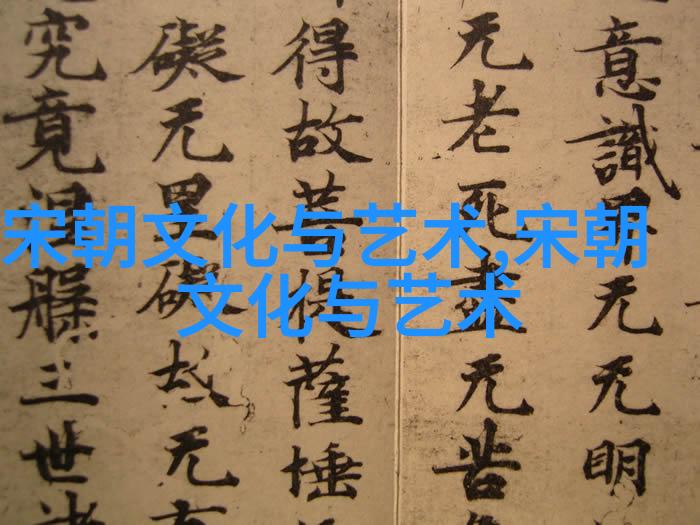 宋朝文化与艺术,宋朝
文化与艺术
意識界无无明
无老死盡无苦
得故菩提薩埵
礙无罣礙故无有
究竟涅槃三世諸